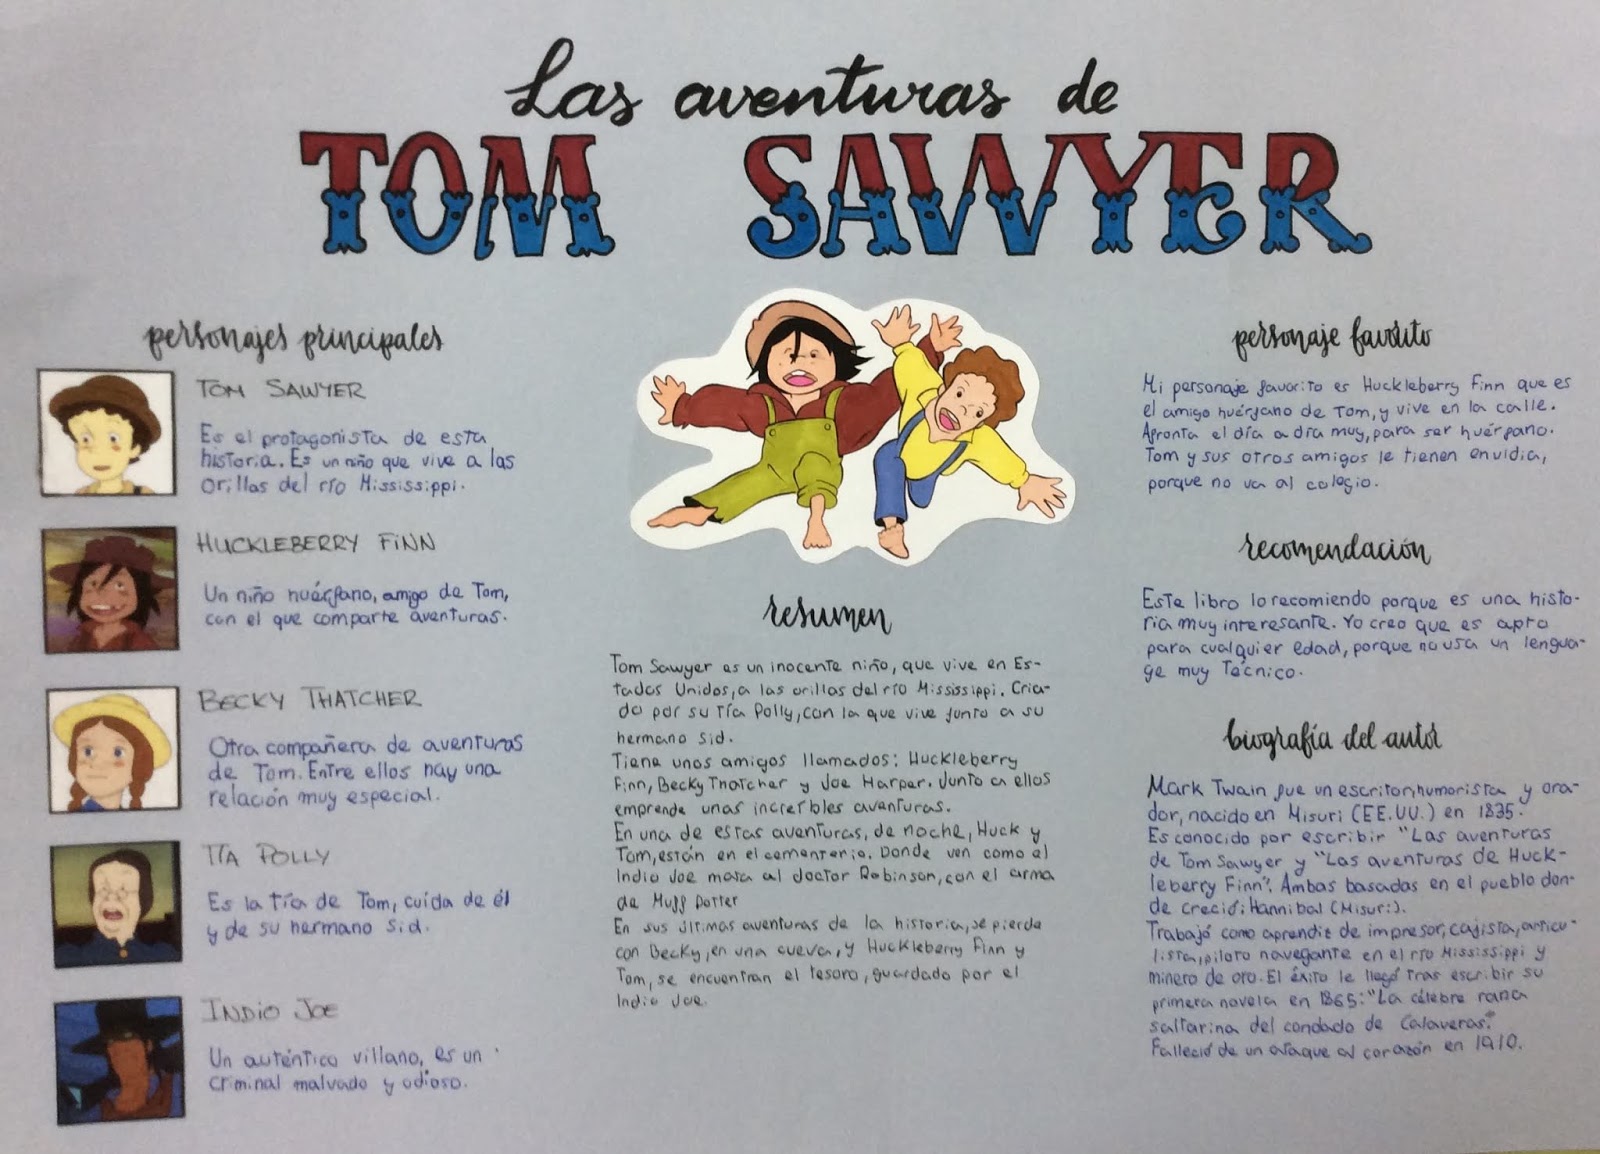 Las aventuras de
TOM SAWYER
personajes principales
TOM SAWYER
Es el protagonista de esta
historia. Es un niño que vive a las
orillas del río Mississippi.
HUCKLEBERRY FINN
Un niño huérfano, amigo de Tom,
con el que comparte aventuras.
BECKY THATCHER
Otra compañera de aventuras
de Tom. Entre ellos hay una
relación muy especial.
TÍA POLLY
Es la tía de Tom, cuida de él
y de su hermano Sid.
INDIO JOE
Un auténtico villano, es un
criminal malvado y odioso.
resumen
Tom Sawyer es un inocente niño, que vive en Es-
tados Unidos, a las orillas del río Mississippi. Cria-
do por su tía Polly, con la que vive junto a su
hermano Sid.
Tiene unos amigos llamados: Huckleberry
Finn, Becky Thatcher y Joe Harper. Junto a ellos
emprende unas increíbles aventuras.
En una de estas aventuras, de noche, Huck y
Tom, están en el cementerio. Donde ven como el
Indio Joe mata al doctor Robinson, con el arma
de Muff Potter
En sus últimas aventuras de la historia, se pierde
con Becky, en una cueva, y Huckleberry Finn y
Tom, se encuentran el tesoro, guardado por el
Indio Joe.
personaje favorito
Mi personaje favorito es Huckleberry Finn que es
el amigo huérfano de Tom, y vive en la calle.
Afronta el día a día muy, para ser huérfano.
Tom y sus otros amigos le tienen envidia,
porque no va al colegio.
recomendación
Este libro lo recomiendo porque es una histo-
ria muy interesante. Yo creo que es apto
para cualquier edad, porque no usa un lengua-
ge muy técnico.
biografía del autor
Mark Twain fue un escritor, humorista y ora-
dor, nacido en Misuri (EE.UU.) en 1835.
Es conocido por escribir "Las aventuras
de Tom Sawyer y "Las aventuras de Huck-
leberry Finn". Ambas basadas en el pueblo don-
de creció: Hannibal (Misuri).
Trabajó como aprendiz de impresor, cajista, articu-
lista, piloto navegante en el río Mississippi y
minero de oro. El éxito le llegó tras escribir su
primera novela en 1865: "La célebre rana
saltarina del condado de Calaveras."
Falleció de un ataque al corazón en 1910.